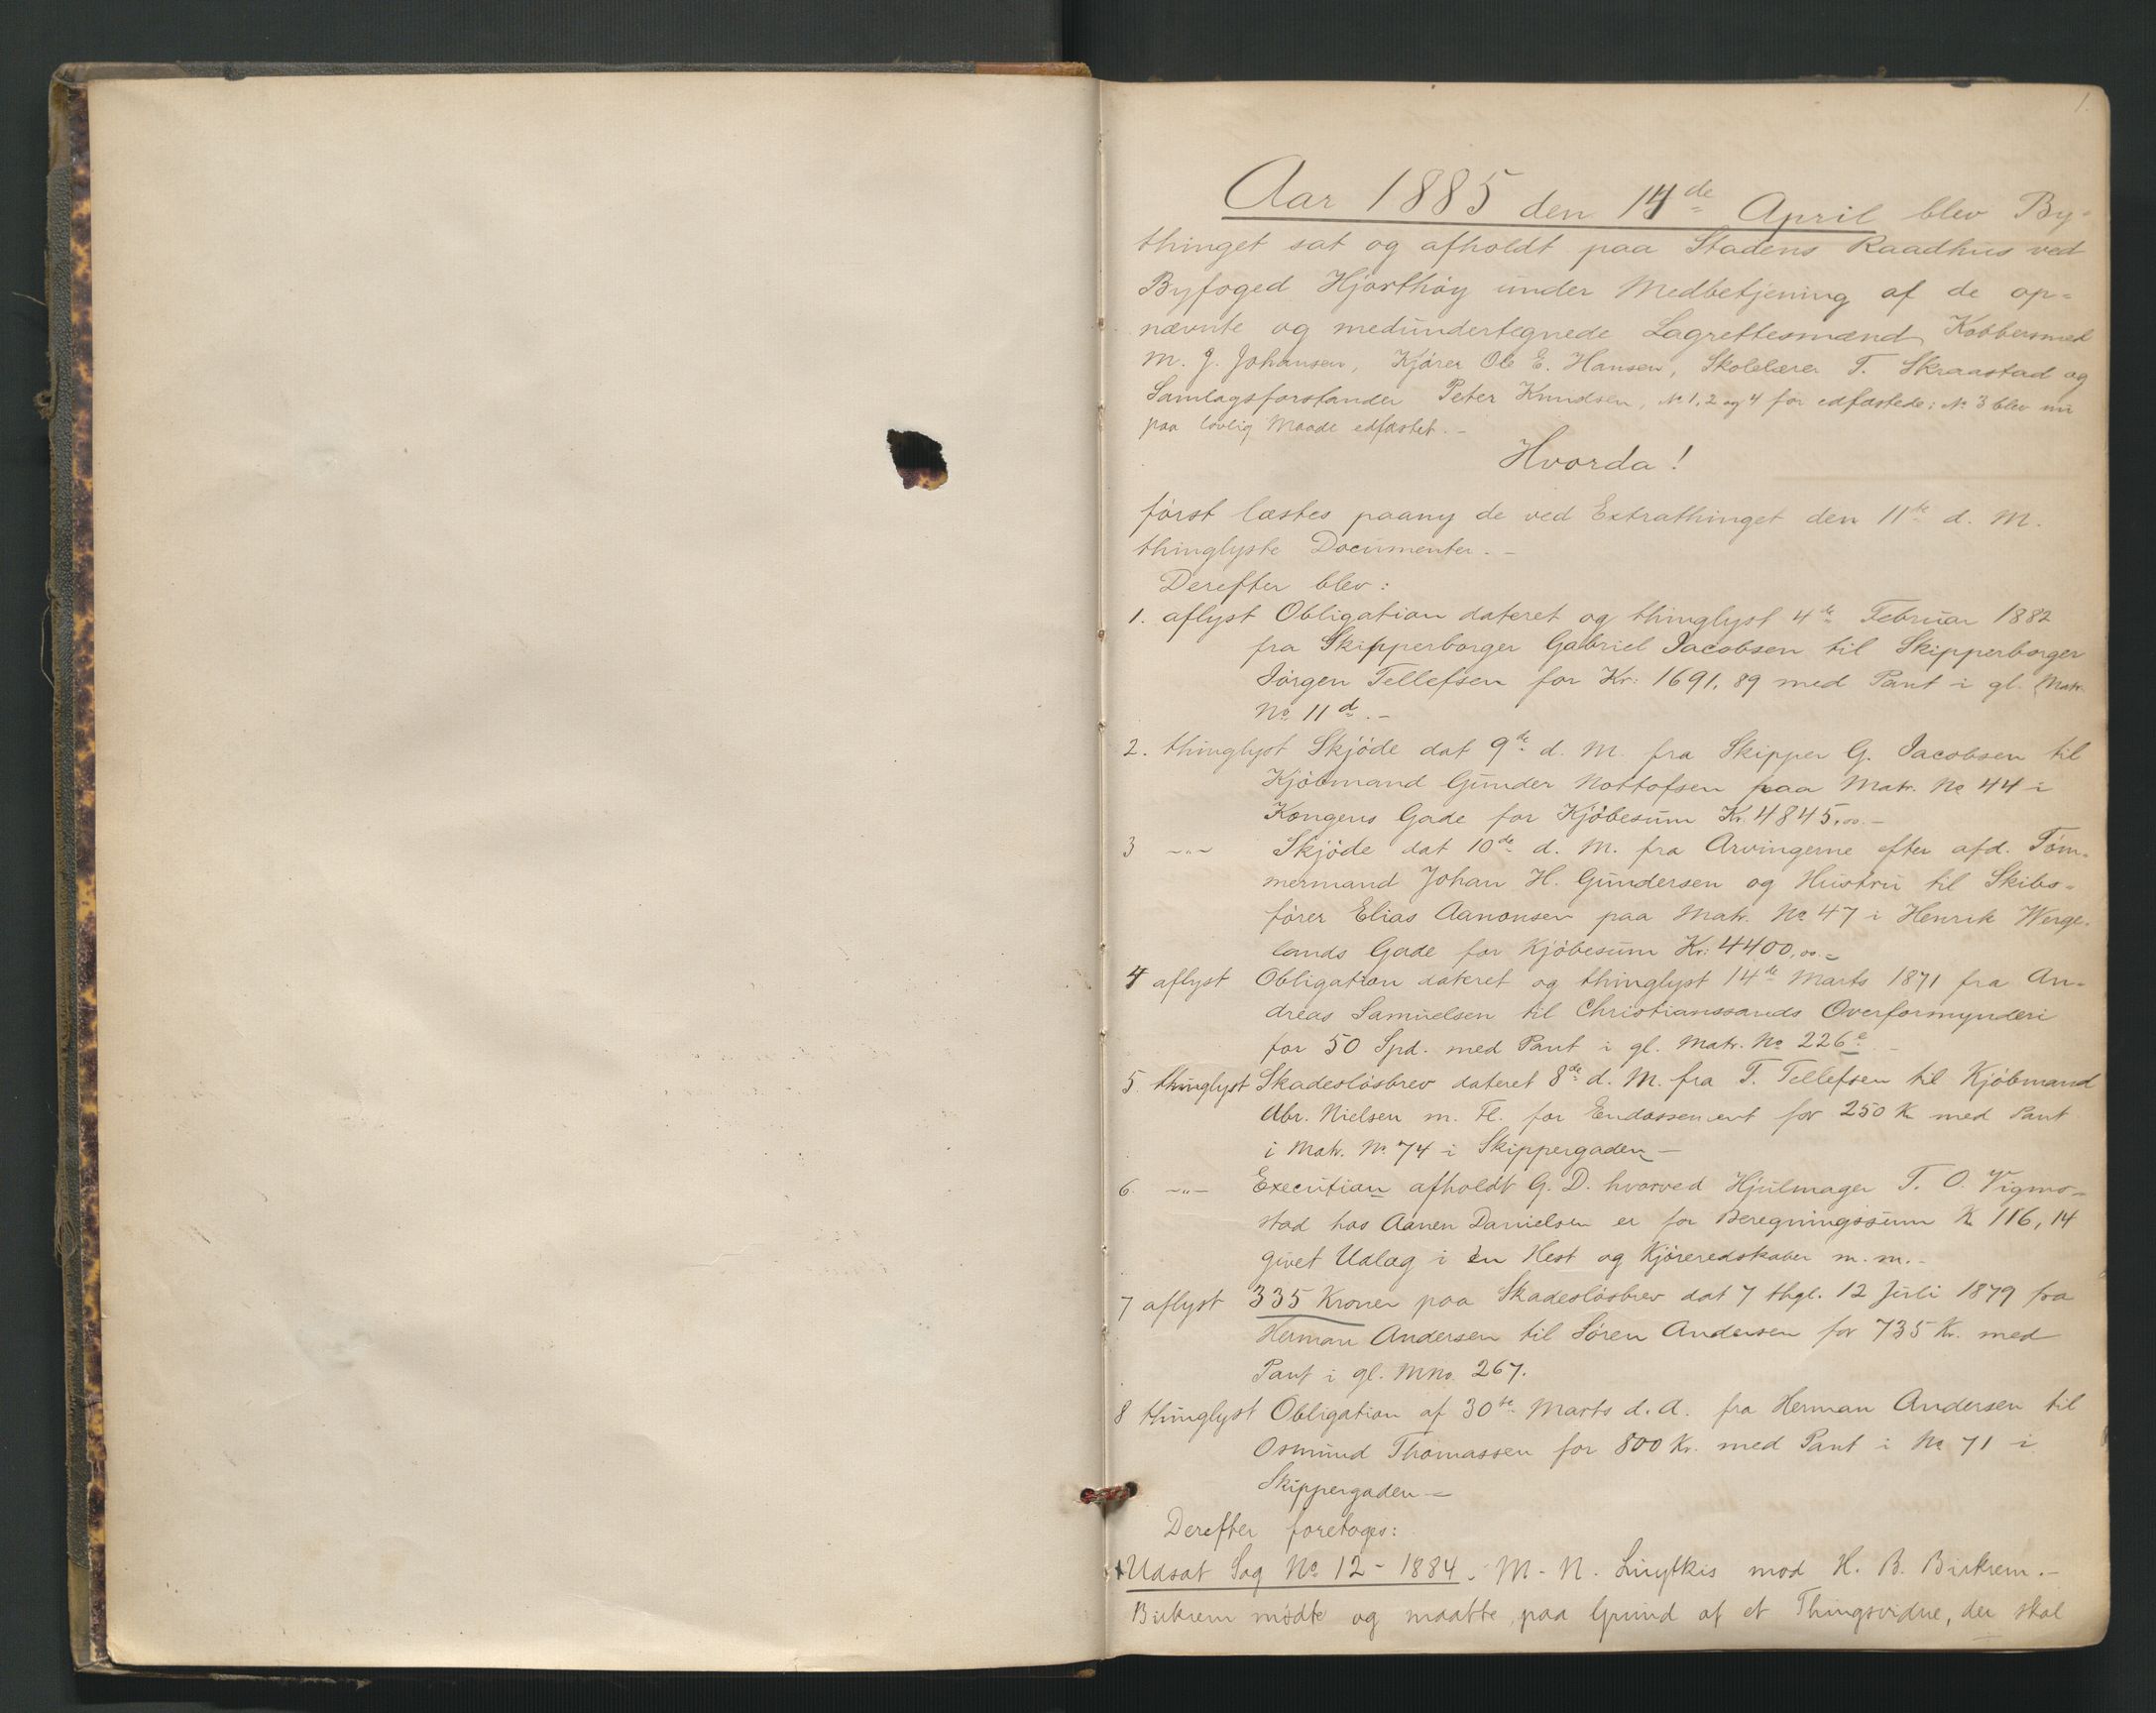 1.
Aar 1885 den 14de April blev By-
thinget sat og afholdt paa Stadens Raadhus ved
Byfoged Hjorthøy under Medbetjening af de op-
nævnte og medundertegnede Lagrettesmænd Kobbersmed
M. J. Johansen, Kjører Ole E. Hansen, Skolelærer T. Skraastad og
Samlagsforstander Peter Knudsen, No 1, 2 og 4 før edfæstede; No 3 blev nu
paa lovlig Maade edfæstet. -
Hvorda!
først læstes paany de ved Extrathinget den 11te d. M.
thinglyste Documenter. -
Derefter blev:
1. aflyst Obligation dateret og thinglyst 4de Februar 1882
fra Skipperborger Gabriel Jacobsen til Skipperborger
Jørgen Tellefsen for Kr: 1691,89 med Pant i gl. Matr.
No 11d. -
2. thinglyst Skjøde dat 9de d. M. fra Skipper G. Jacobsen til
Kjøbmand Gunder Nottofsen paa Matr. No 44 i
Kongens Gade for Kjøbesum Kr. 4845,00. -
3 -"- Skjøde dat 10de d. M. fra Arvingerne efter afd. Tøm-
mermand Johan H. Gundersen og Hustru til Skibs-
fører Elias Aanonsen paa Matr. No 47 i Henrik Werge-
lands Gade for Kjøbesum Kr: 4400,00. -
4 aflyst Obligation dateret og thinglyst 14de Marts 1871 fra An-
dreas Samuelsen til Christianssands Overformynderi
for 50 Spd. med Pant i gl. Matr. No 226e. -
5. thinglyst Skadesløsbrev dateret 8de d. M. fra T. Tellefsen til Kjøbmand
Abr. Nielsen m. Fl. for Endossement for 250 Kr med Pant
i Matr. No 74 i Skippergaden -
6. -"- Execution afholdt G. D. hvorved Hjulmager T. O. Vigmo-
stad hos Aanen Danielsen er for Beregningssum Kr 116,14
givet Udlæg i en Hest og Kjøreredskaber m. m. -
7 aflyst 335 Kroner paa Skadesløsbrev dat 7 thgl. 12 Juli 1879 fra
Herman Andersen til Søren Andersen for 735 Kr. med
Pant i gl. MNo. 267.
8 thinglyst Obligation af 30te Marts d. A. fra Herman Andersen til
Osmund Thomassen for 800 Kr. med Pant i No 71 i
Skippergaden -
Derefter foretoges:
Udsat Sag No 12 - 1884. M. N. mod H. B. Birkrem. -
Birkrem mødte og maatte, paa Grund af et Thingsvidne, der skal